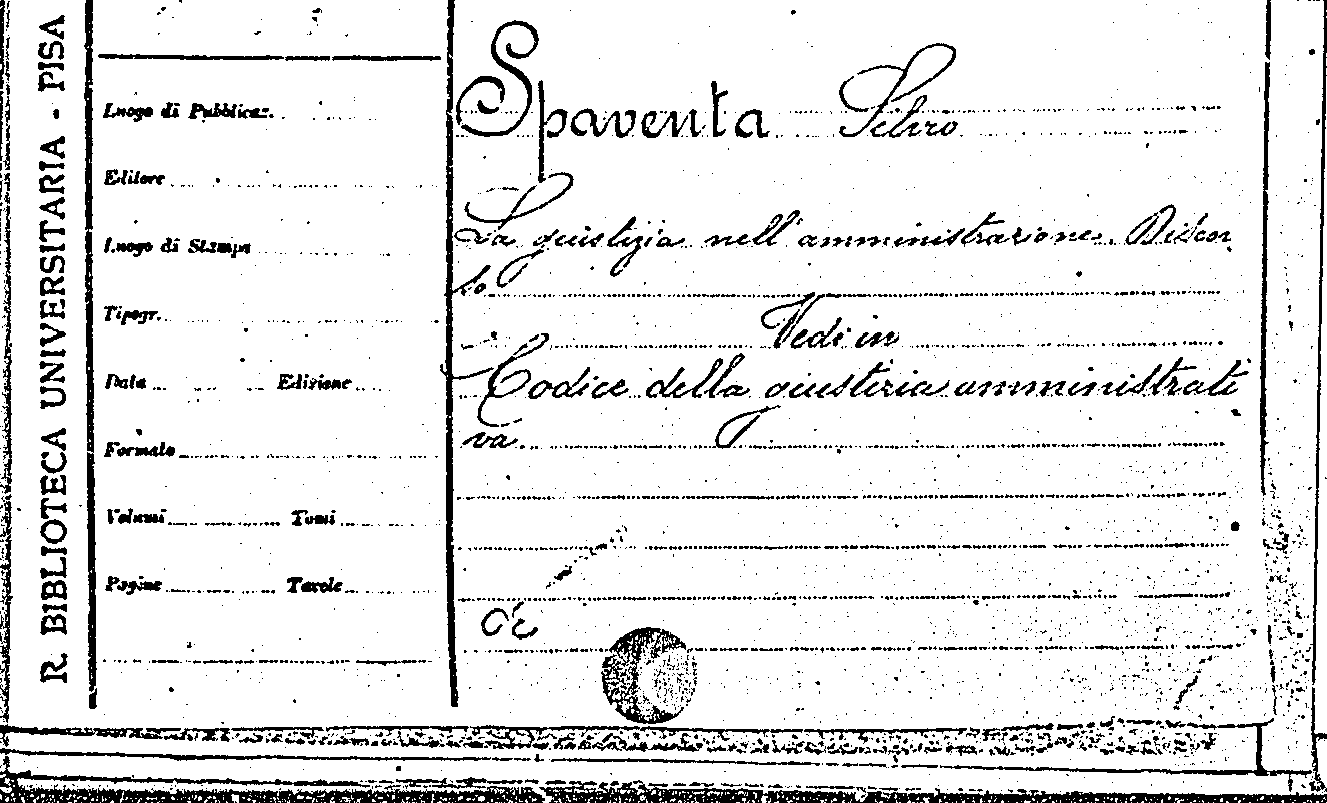 R. BIBLIOTECA UNIVERSITARIA - PISA
Luogo di Pubblicaz.
Editore
Luogo di Stampa
Tipogr.
Data Edizione
Formato
Volumi Tomi
Pagine Tavole
Spaventa Silvio
La giustizia nell'amministrazione. Discor
so
Vedi in
Codice della giustizia amministrati
va.